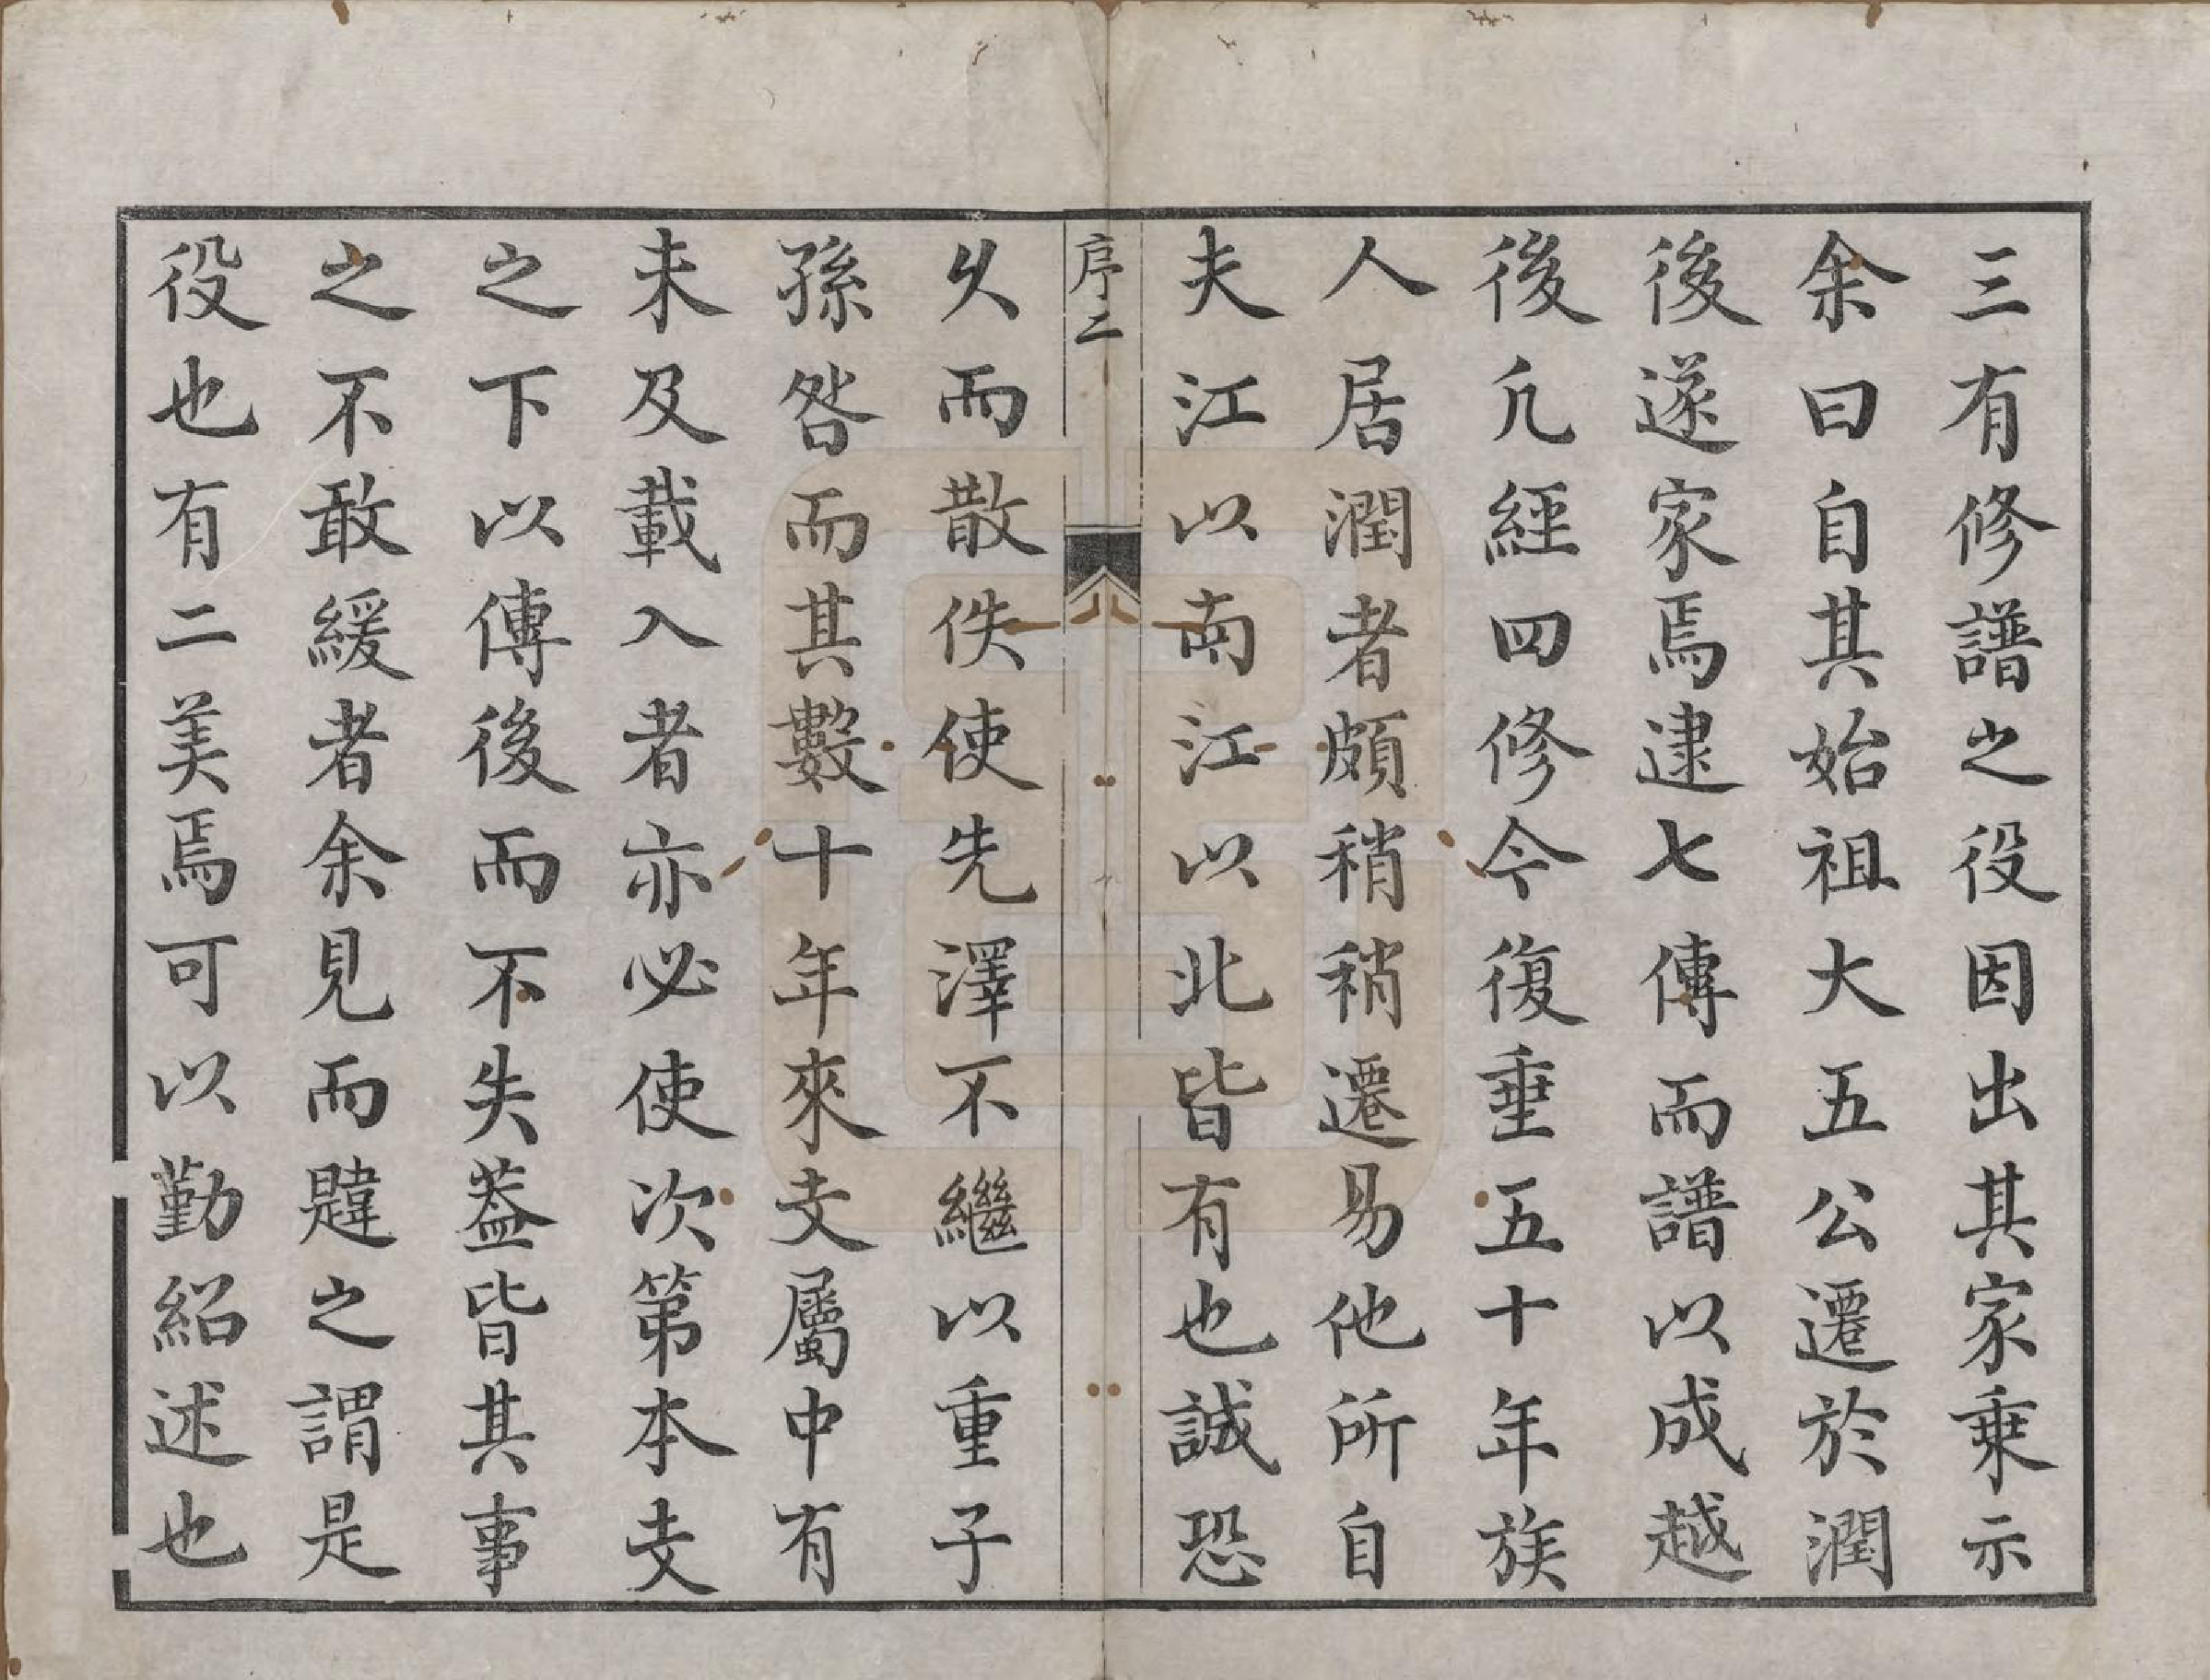 三有修譜之役因出其家乗示
余曰自其始祖大五公遷於潤
後遂家焉逮七傳而譜以成越
後凢經四修今復垂五十年族
人居潤者頗稍稍遷易他所自
夫江以南江以北皆有也誠恐
序二
乆而散佚使先澤不繼以重子
孫咎而其數十年來支屬中有
未及載入者亦必使次第本支
之下以傳後而不失葢皆其事
之不敢緩者余見而韙之謂是
役也有二美焉可以勤紹述也